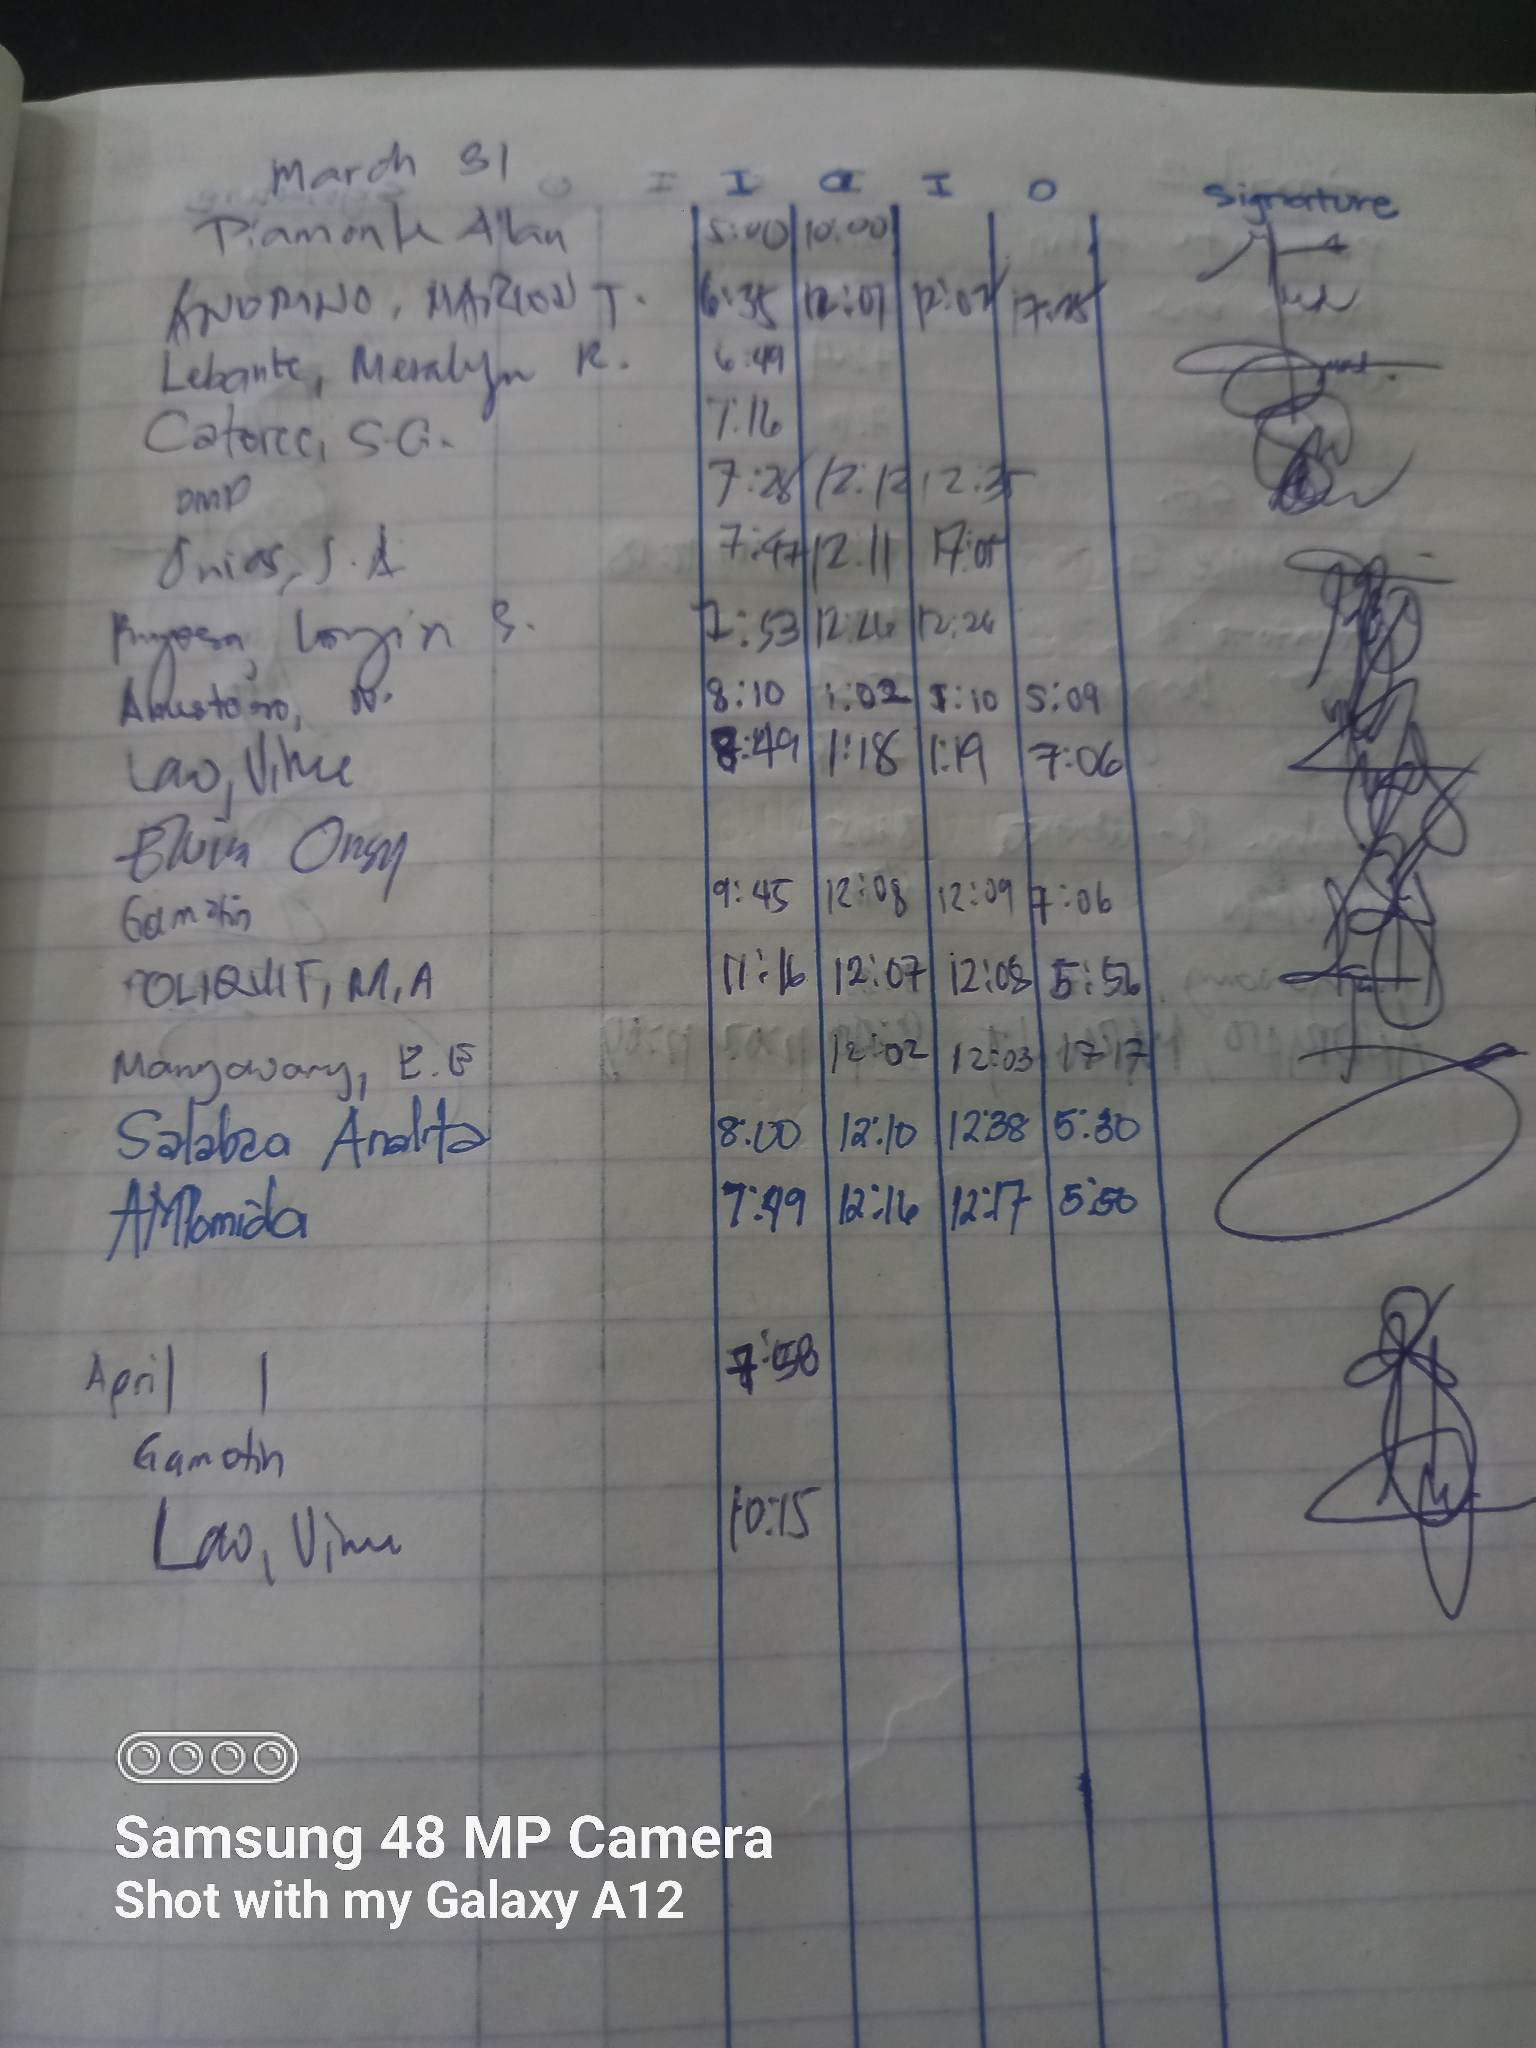 March 31 I O I O Signature
Piamonte Allan 5:00 10:00
ANDRINO, MARION T. 6:35 12:07 12:07
Lebante, Meralyn R. 6:49
Catorce, S.G. 7:16
DMP 7:28 12:12 12:35
Onias, J.A 7:47 12:11 17:05
S. 7:53 12:26 12:26
N. 8:10 1:02 1:10 5:09
Lao, Vime 8:49 1:18 1:19 7:06
Elvin
Gamotin 9:45 12:08 12:09 7:06
POLIQUIT, M.A 11:16 12:07 12:08 5:56
Mangawang, E.E 12:02 12:03 17:17
Salabza Analita 8:00 12:10 12:38 5:30
AMPomida 7:49 12:16 12:17 5:50
April 1 7:58
Gamotin
Lao, Vime 10:15
Samsung 48 MP Camera
Shot with my Galaxy A12